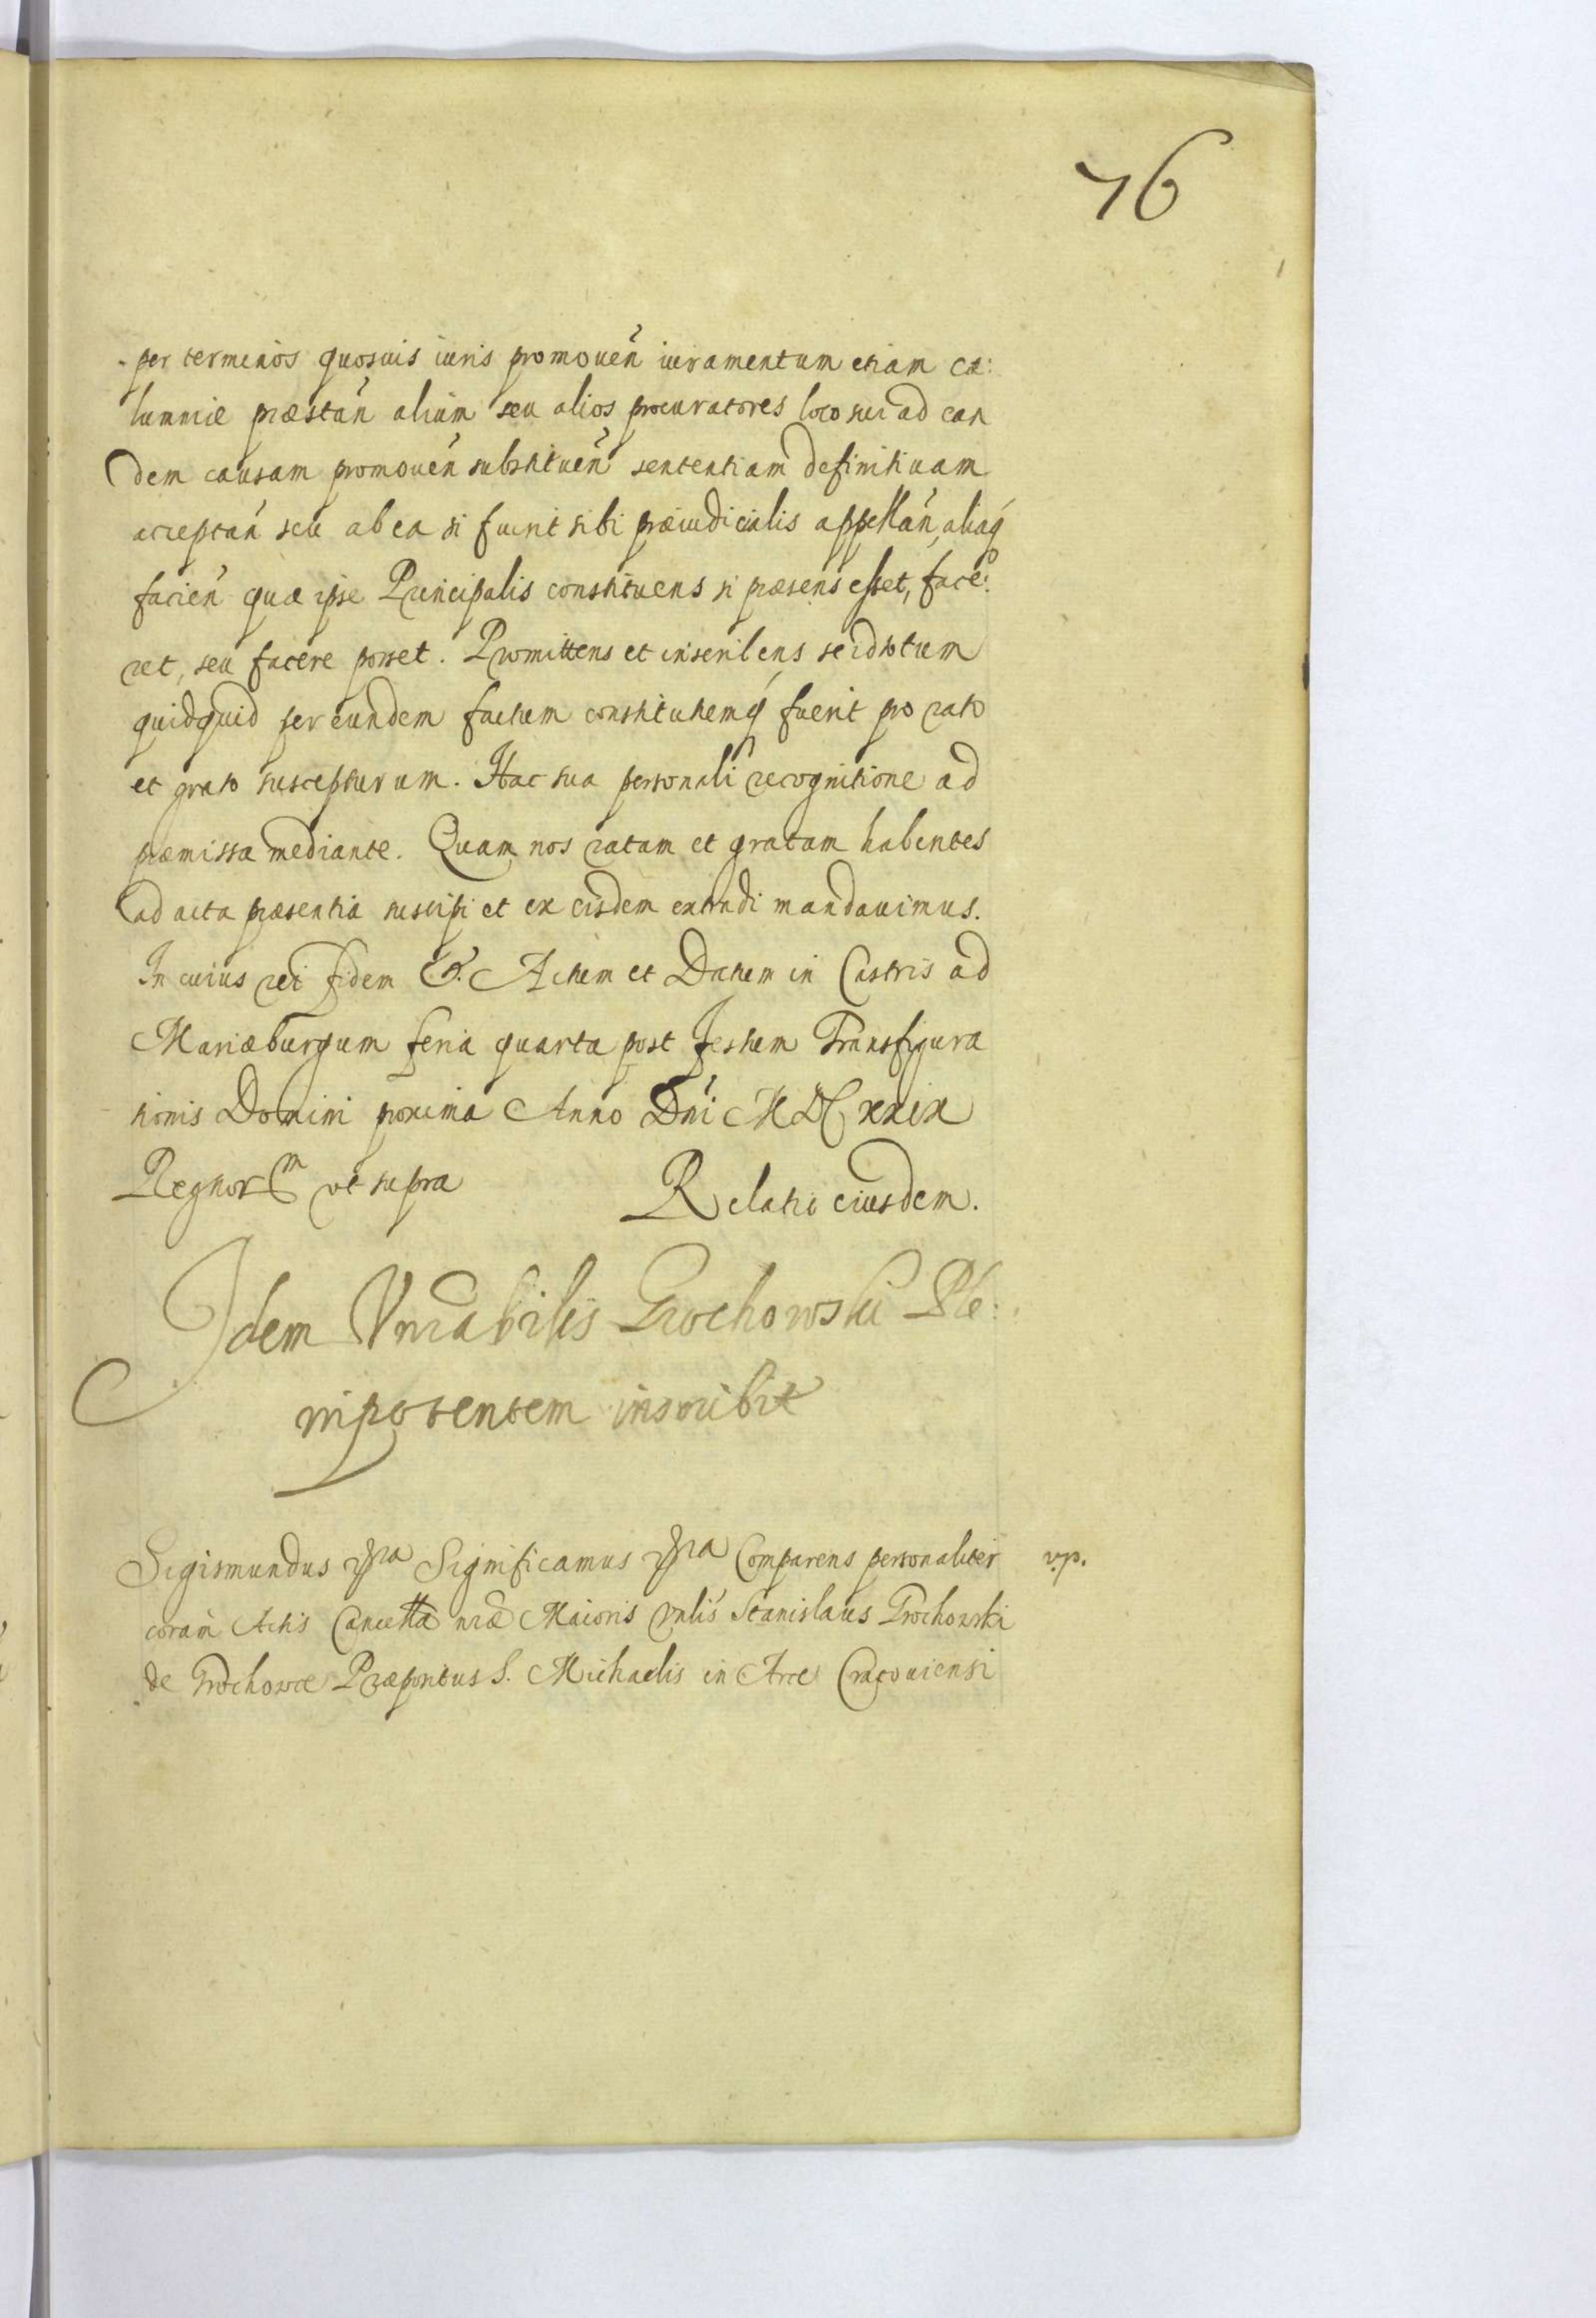 76
per terminos quosuis iuris promoueñ iuramentum etiam ca:
lumniæ præstañ alium seu alios procuratores loco sui ad ean
dem causam promoueñ substitueñ sententiam definitiuam
acceptañ seu ab ea si fuerit sibi præiudicialis appellañ, aliaq́
facieñ quæ ipse Principalis constituens si præsens esset, face:
ret, seu facere posset. Promittens et inscribens se id totum
quidquid per eundem factum constitutumq́ fuerit pro rato
et grato suscepturum. Hac sua personali recognitione ad
præmissa mediante. Quam nos ratam et gratam habentes
ad acta præsentia suscipi et ex eisdem extradi mandauimus.
In cuius rei fidem &. Actum et Datum in Castris ad
Mariæburgum feria quarta post festum Transfigura
tionis Domini proxima Anno Dni MDCxxix
Regnorm vt supra
Relatio eiusdem.
Idem Vnrabilis Grochowski Ple:
nipotentem inscribit
Sigismundus Significamus Comparens personaliter
vp.
coram Actis Cancella nræ Maioris Vnlis Stanislaus Grochowski
de Grochowce Præpositus S. Michaelis in Arce Cracouiensi